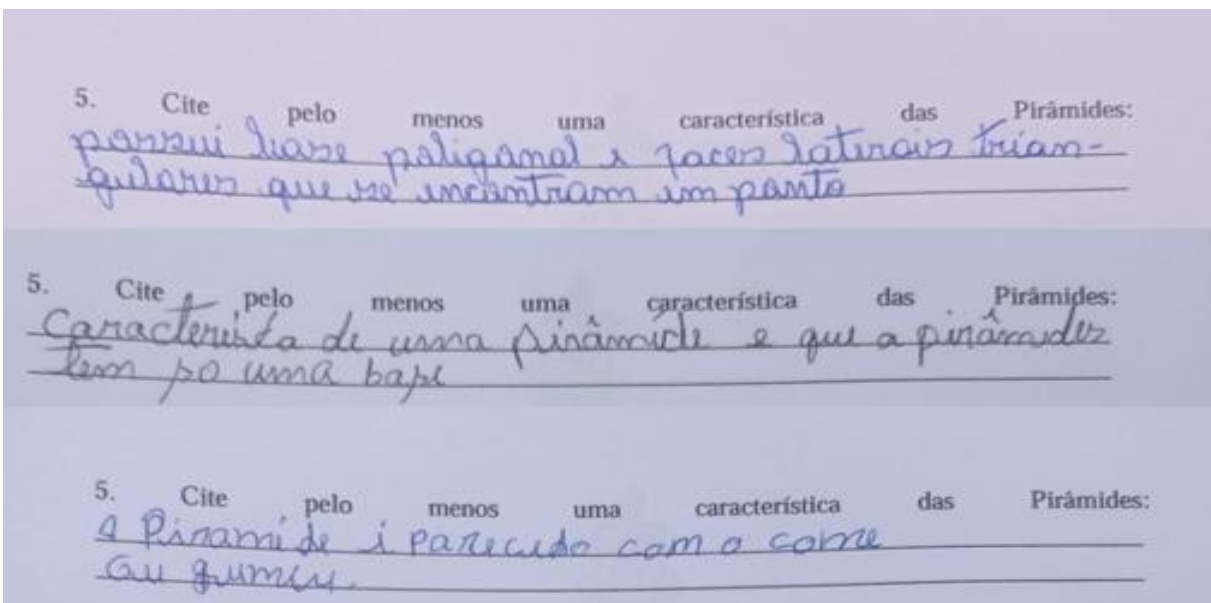 5. Cite pelo menos uma característica das Pirâmides:
possui base poligonal e faces laterais trian-
gulares que se encontram em ponto
5. Cite pelo menos uma característica das Pirâmides:
Caracterista de uma pirâmide e que a pirâmidez
tem so uma base
5. Cite pelo menos uma característica das Pirâmides:
A Piramide é parecido com o cone